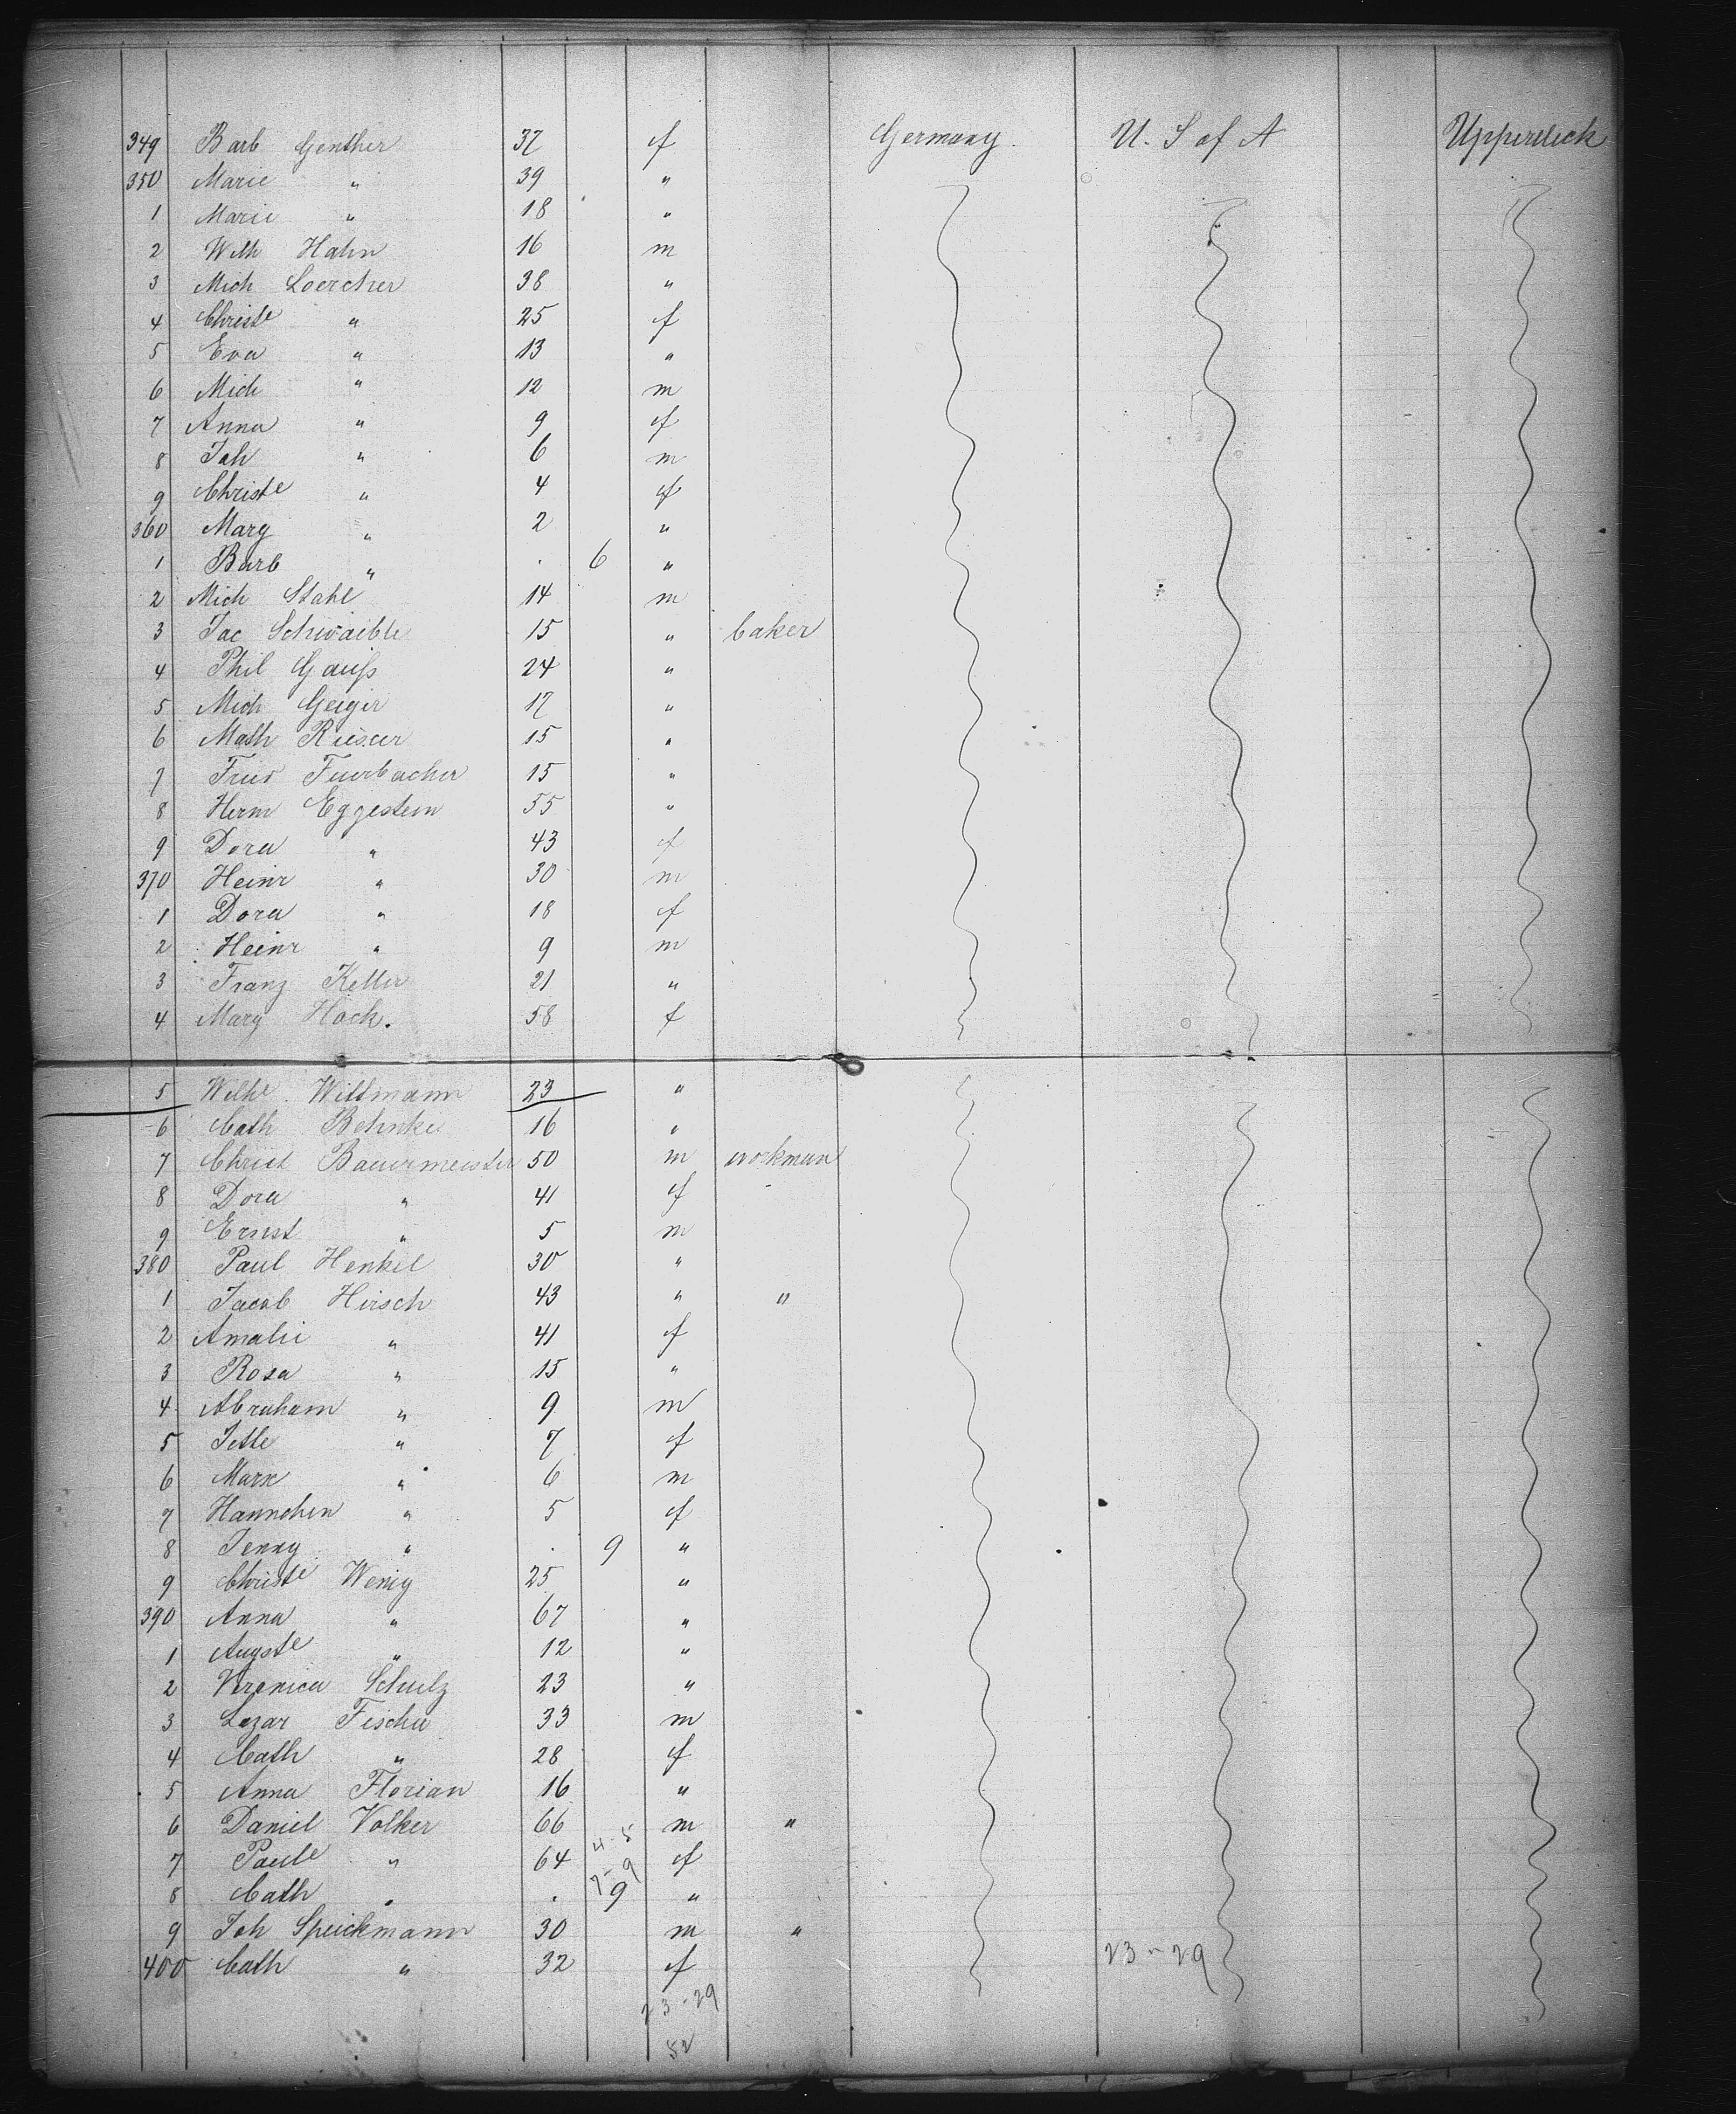 349 Barb Genther 37 f Germany. U. S of A Upperdeck
350 Marie " 39 "
1 Marie " 18 "
2 Wilh Hahn 16 m
3 Mich Loercher 38 "
4 Christe " 25 f
5 Eva " 13 "
6 Mich " 12 m
7 Anna " 9 f
8 Joh " 6 m
9 Christe " 4 f
360 Marg " 2 "
1 Barb " . 6 "
2 Mich Stahl 14 m
3 Jac Schwaible 15 " baker
4 Phil Gauß 24 "
5 Mich Geiger 17 "
6 Math 15 "
7 Fried Feuerbacher 15 "
8 Herm Eggestein 55 "
9 Dora " 43 f
370 Heinr " 30 m
1 Dora " 18 f
2 Heinr " 9 m
3 Franz Keller 21 "
4 Marg Hock. 58 f
5 Wilhe Wittmann 23 "
6 Cath Behnke 16 "
7 Christ Bauermeister 50 m workman
8 Dora " 41 f
9 Ernst " 5 m
380 Paul Henkel 30 "
1 Jacob Hirsch 43 " "
2 Amalie " 41 f
3 Rosa " 15 "
4 Abraham " 9 m
5 Jette " 7 f
6 Marx " 6 m
7 Hannchen " 5 f
8 Jenny " . 9 "
9 Christe Wenig 25 "
390 Anna " 67 "
1 Augste " 12 "
2 Veronica Schulz 23 "
3 Lazar Fischer 33 m
4 Cath " 28 f
5 Anna Florian 16 "
6 Daniel Volker 66 m "
4-5
7 Paule " 64 f
7-9
8 Cath " . 9 "
9 Joh Speickmann 30 m "
400 Cath " 32 f 23-29
23-29
52